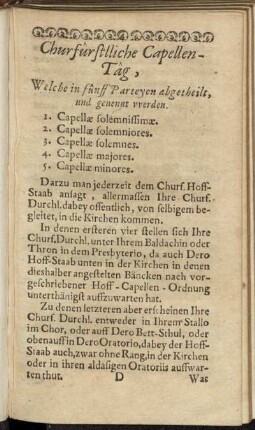 Churfürstliche Capellen-
Tåg,
Welche in fünff Parteyen abgetheilt,
und genennt vverden.
1. Capellæ solemnissimæ.
2. Capellæ solemniores.
3. Capellæ solemnes.
4. Capellæ majores.
5. Capellæ minores.
Darzu man jederzeit dem Churf. Hoff-
Staab ansagt, allermassen Ihre Churf.
Durchl. dabey offentlich, von selbigem be-
gleitet, in die Kirchen kommen.
In denen ersteren vier stellen sich Ihre
Churf. Durchl. unter Ihrem Baldachin oder
Thron in dem Presbyterio, da auch Dero
Hoff-Staab unten in der Kirchen in denen
dieshalber angestelten Bäncken nach vor-
geschriebener Hoff-Capellen-Ordnung
unterthänigst auffzuwarten hat.
Zu denen letzteren aber erscheinen Ihre
Churf. Durchl. entweder in Ihrem Stallo
im Chor, oder auff Dero Bett-Sthul, oder
obenauff in Dero Oratorio, dabey der Hoff-
Staab auch, zwar ohne Rang, in der Kirchen
oder in ihren aldasigen Oratoriis auffwar-
ten thut. D Was